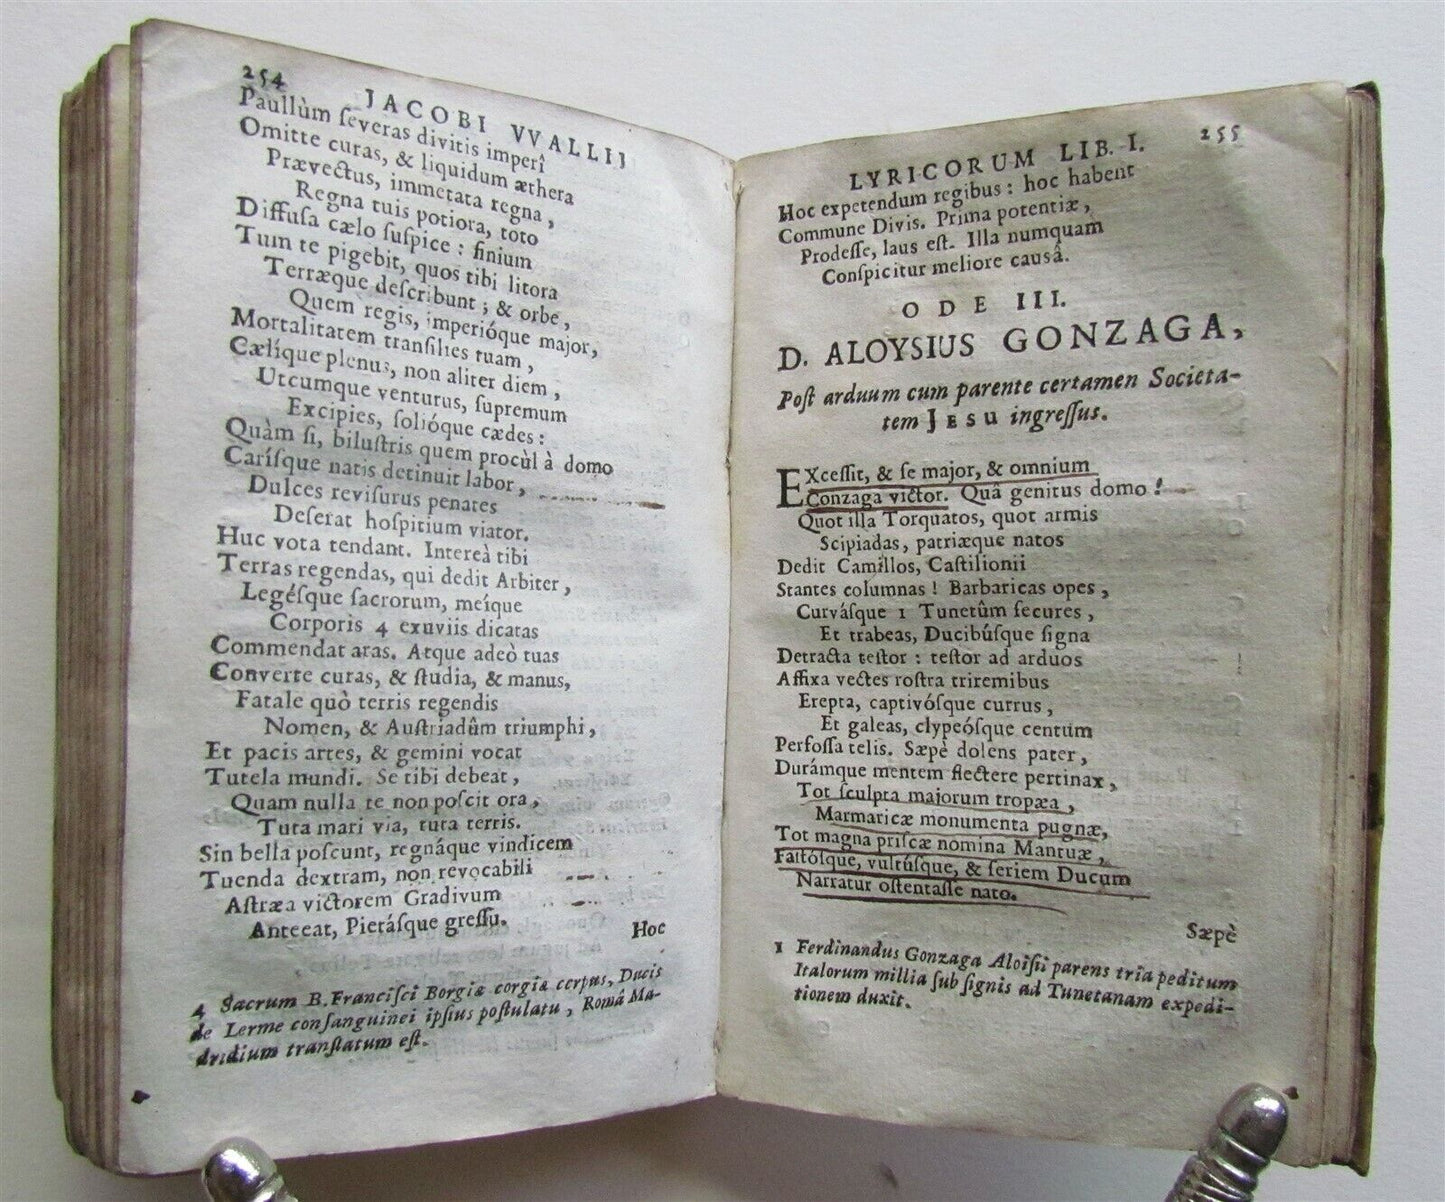 254
JACOBI VVALLIJ
Paullùm ſeveras divitis imperî
Omitte curas, & liquidum æthera
Prævectus, immetata regna,
Regna tuis potiora, toto
Diffuſa cælo ſuſpice : finium
Tum te pigebit, quos tibi litora
Terræque deſcribunt ; & orbe,
Quem regis, imperióque major,
Mortalitatem tranſilies tuam,
Cælíque plenus, non aliter diem,
Utcumque venturus, ſupremum
Excipies, ſolióque cædes :
Quàm ſi, biluſtris quem procùl à domo
Caríſque natis detinuit labor,
Dulces reviſurus penates
Deſerat hoſpitium viator.
Huc vota tendant. Intereà tibi
Terras regendas, qui dedit Arbiter,
Legéſque ſacrorum, meíque
Corporis 4 exuviis dicatas
Commendat aras. Atque adeò tuas
Converte curas, & ſtudia, & manus,
Fatale quò terris regendis
Nomen, & Auſtriadûm triumphi,
Et pacis artes, & gemini vocat
Tutela mundi. Se tibi debeat,
Quam nulla te non poſcit ora,
Tuta mari via, tuta terris.
Sin bella poſcunt, regnáque vindicem
Tuenda dextram, non revocabili
Aſtræa victorem Gradivum
Anteeat, Pietáſque greſſu.
Hoc
4 Sacrum B. Franciſci Borgiæ corgiæ corpus, Ducis
de Lerme conſanguinei ipſius poſtulatu, Româ Ma-
dridium tranſlatum eſt.
LYRICORUM LIB. I.
255
Hoc expetendum regibus : hoc habent
Commune Divis. Prima potentiæ,
Prodeſſe, laus eſt. Illa numquam
Conſpicitur meliore causâ.
ODE III.
D. ALOYSIUS GONZAGA,
Poſt arduum cum parente certamen Societa-
tem JESU ingreſſus.
EXceſſit, & ſe major, & omnium
Gonzaga victor. Quâ genitus domo !
Quot illa Torquatos, quot armis
Scipiadas, patriæque natos
Dedit Camillos, Caſtilionii
Stantes columnas ! Barbaricas opes,
Curváſque 1 Tunetûm ſecures,
Et trabeas, Ducibúſque ſigna
Detracta teſtor : teſtor ad arduos
Affixa vectes roſtra triremibus
Erepta, captivóſque currus,
Et galeas, clypeóſque centum
Perfoſſa telis. Sæpè dolens pater,
Durámque mentem flectere pertinax,
Tot ſculpta majorum tropæa,
Marmaricæ monumenta pugnæ,
Tot magna priſcæ nomina Mantuæ,
Faſtóſque, vultúſque, & ſeriem Ducum
Narratur oſtentaſſe nato.
Sæpè
1 Ferdinandus Gonzaga Aloiſii parens tria peditum
Italorum millia ſub ſignis ad Tunetanam expedi-
tionem duxit.